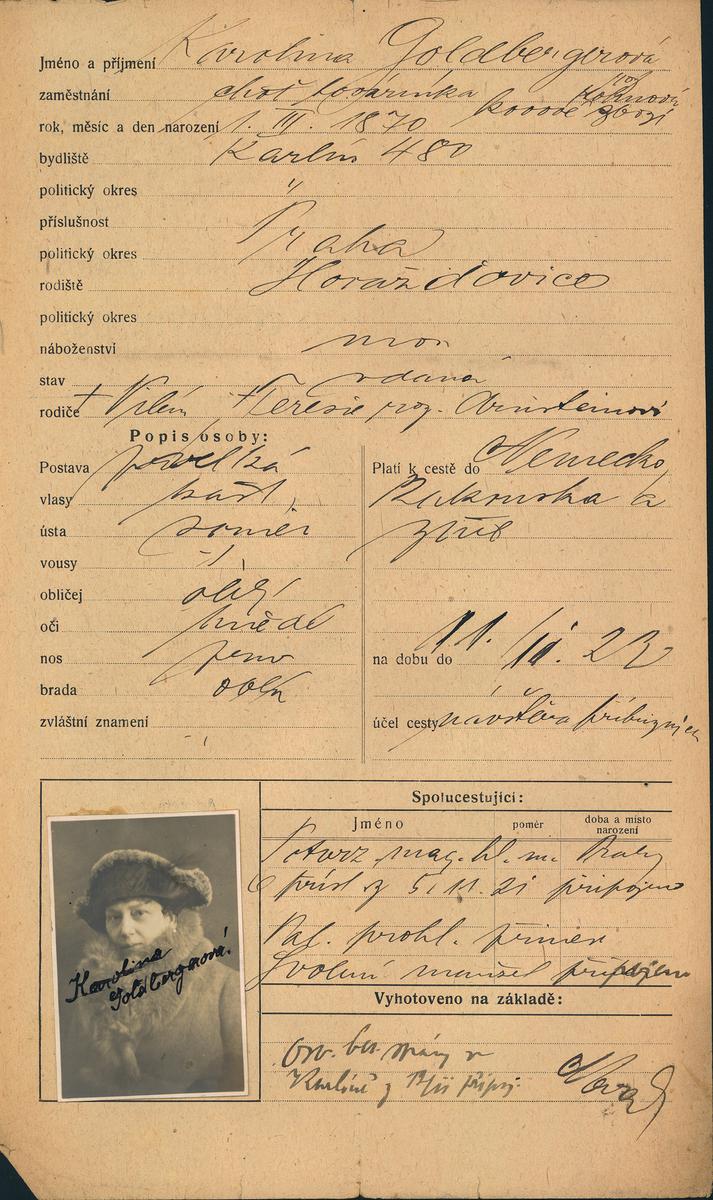 Jméno a příjmení Karolina Goldbergerová
zaměstnání choť továrníka
kovové zboží
rok, měsíc a den narození 1. III. 1870
bydliště Karlín 480
politický okres "
příslušnost
politický okres Praha
rodiště Horažďovice
politický okres
náboženství mos
stav vdaná
rodiče † Vilém † Terezie roz. Arnsteinová
Popis osoby:
Postava prostř.
vlasy kašt.
ústa souměr
vousy -
obličej obl.
oči hnědé
nos souměr
brada obl.
zvláštní znamení -
Platí k cestě do Německo,
Rakouska a
zpět
na dobu do 11./11. 22
účel cesty návštěva příbuzných
Spolucestující:
Jméno poměr doba a místo narození
Potvrz. mag. hl. m. Prahy
o přísl. z 5. 11. 21 připojeno
Pal. prohl. přinesa
Svolení manžel připojeno
Vyhotoveno na základě:
Karlíně z připoj.
Karolina
Goldbergerová.